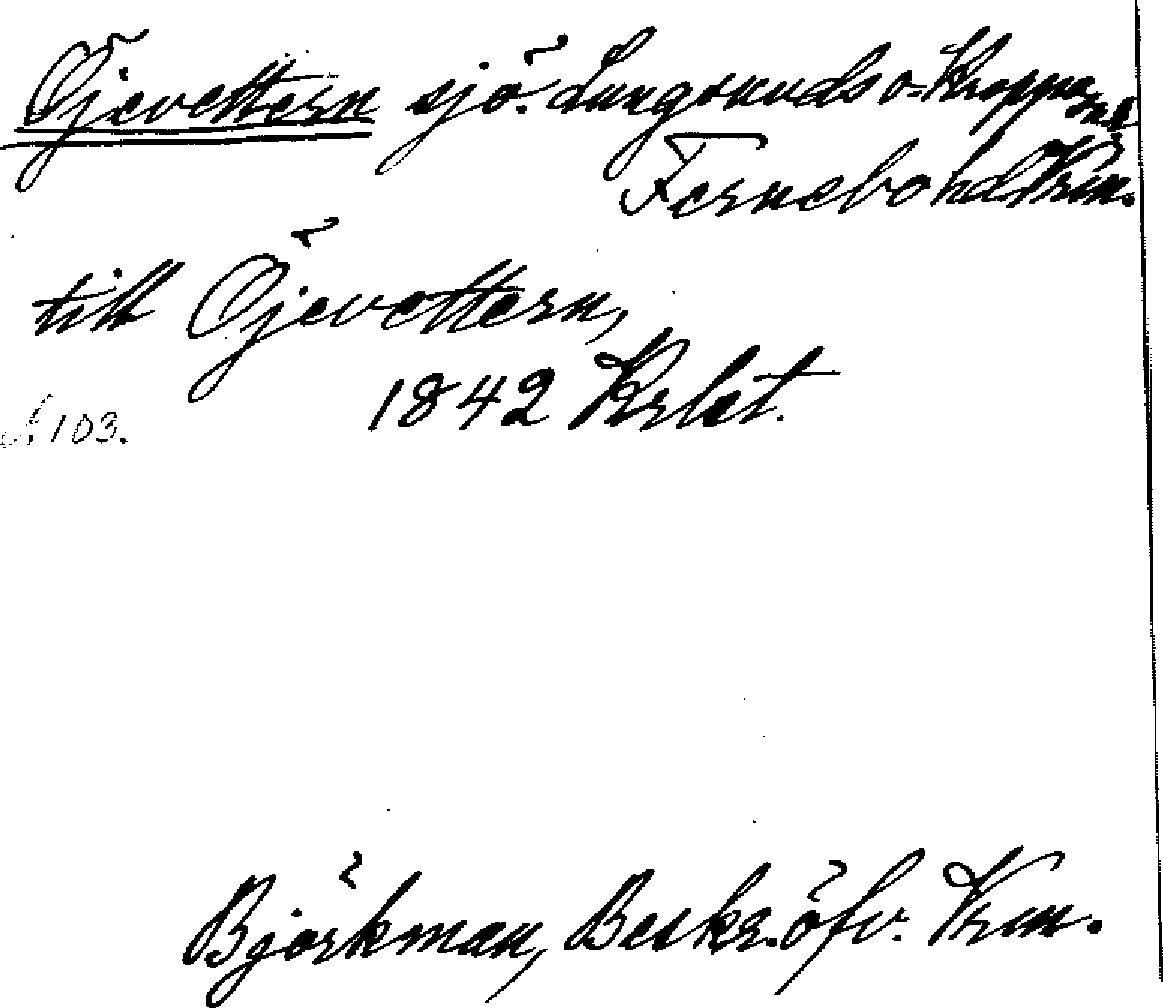 Öjevettern sjö. Lungsunds o. Kroppa
Fernebo hd Vrm.
till Öjevettern,
1842 Krbet.
103.
Björkman, Beskr. öfv. Vrm.